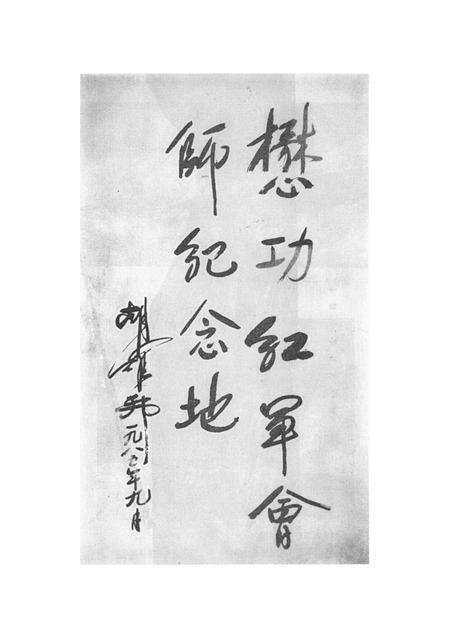 懋功红军會
師紀念地
胡耀邦一九八三年九月